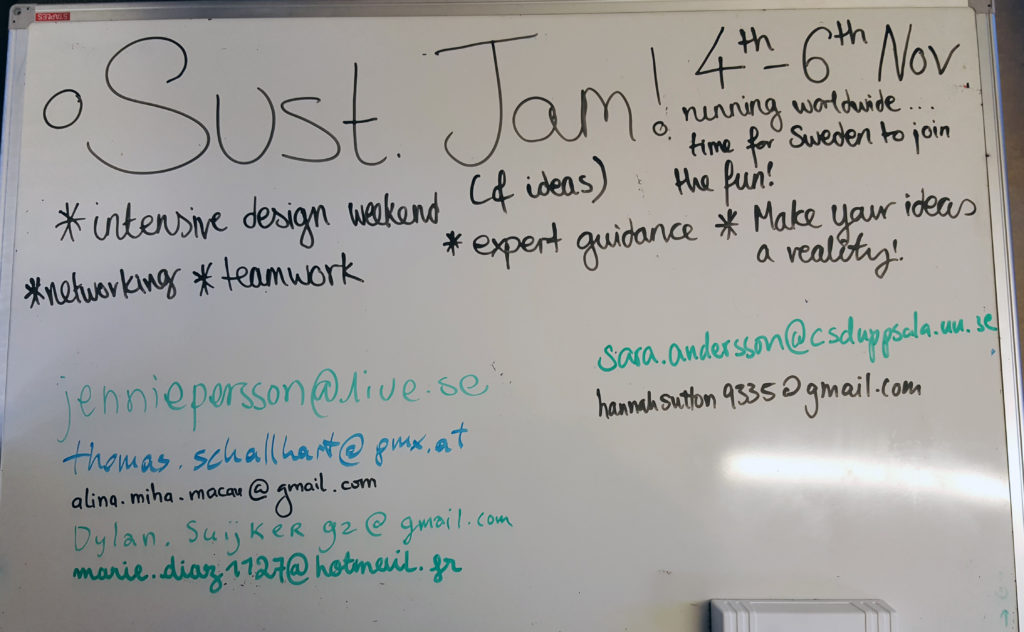 STAPLES
Sust. Jam!
4th - 6th Nov
running worldwide...
time for Sweden to join
the fun!
* intensive design weekend
(& ideas)
* expert guidance
* Make your ideas
a reality!
* networking * teamwork
sara.andersson@csduppsala.uu.se
hannahsutton9335@gmail.com
jenniepersson@live.se
thomas.schallhart@gmx.at
alina.miha.macau@gmail.com
Dylan.Suijker92@gmail.com
marie.diaz1127@hotmail.fr